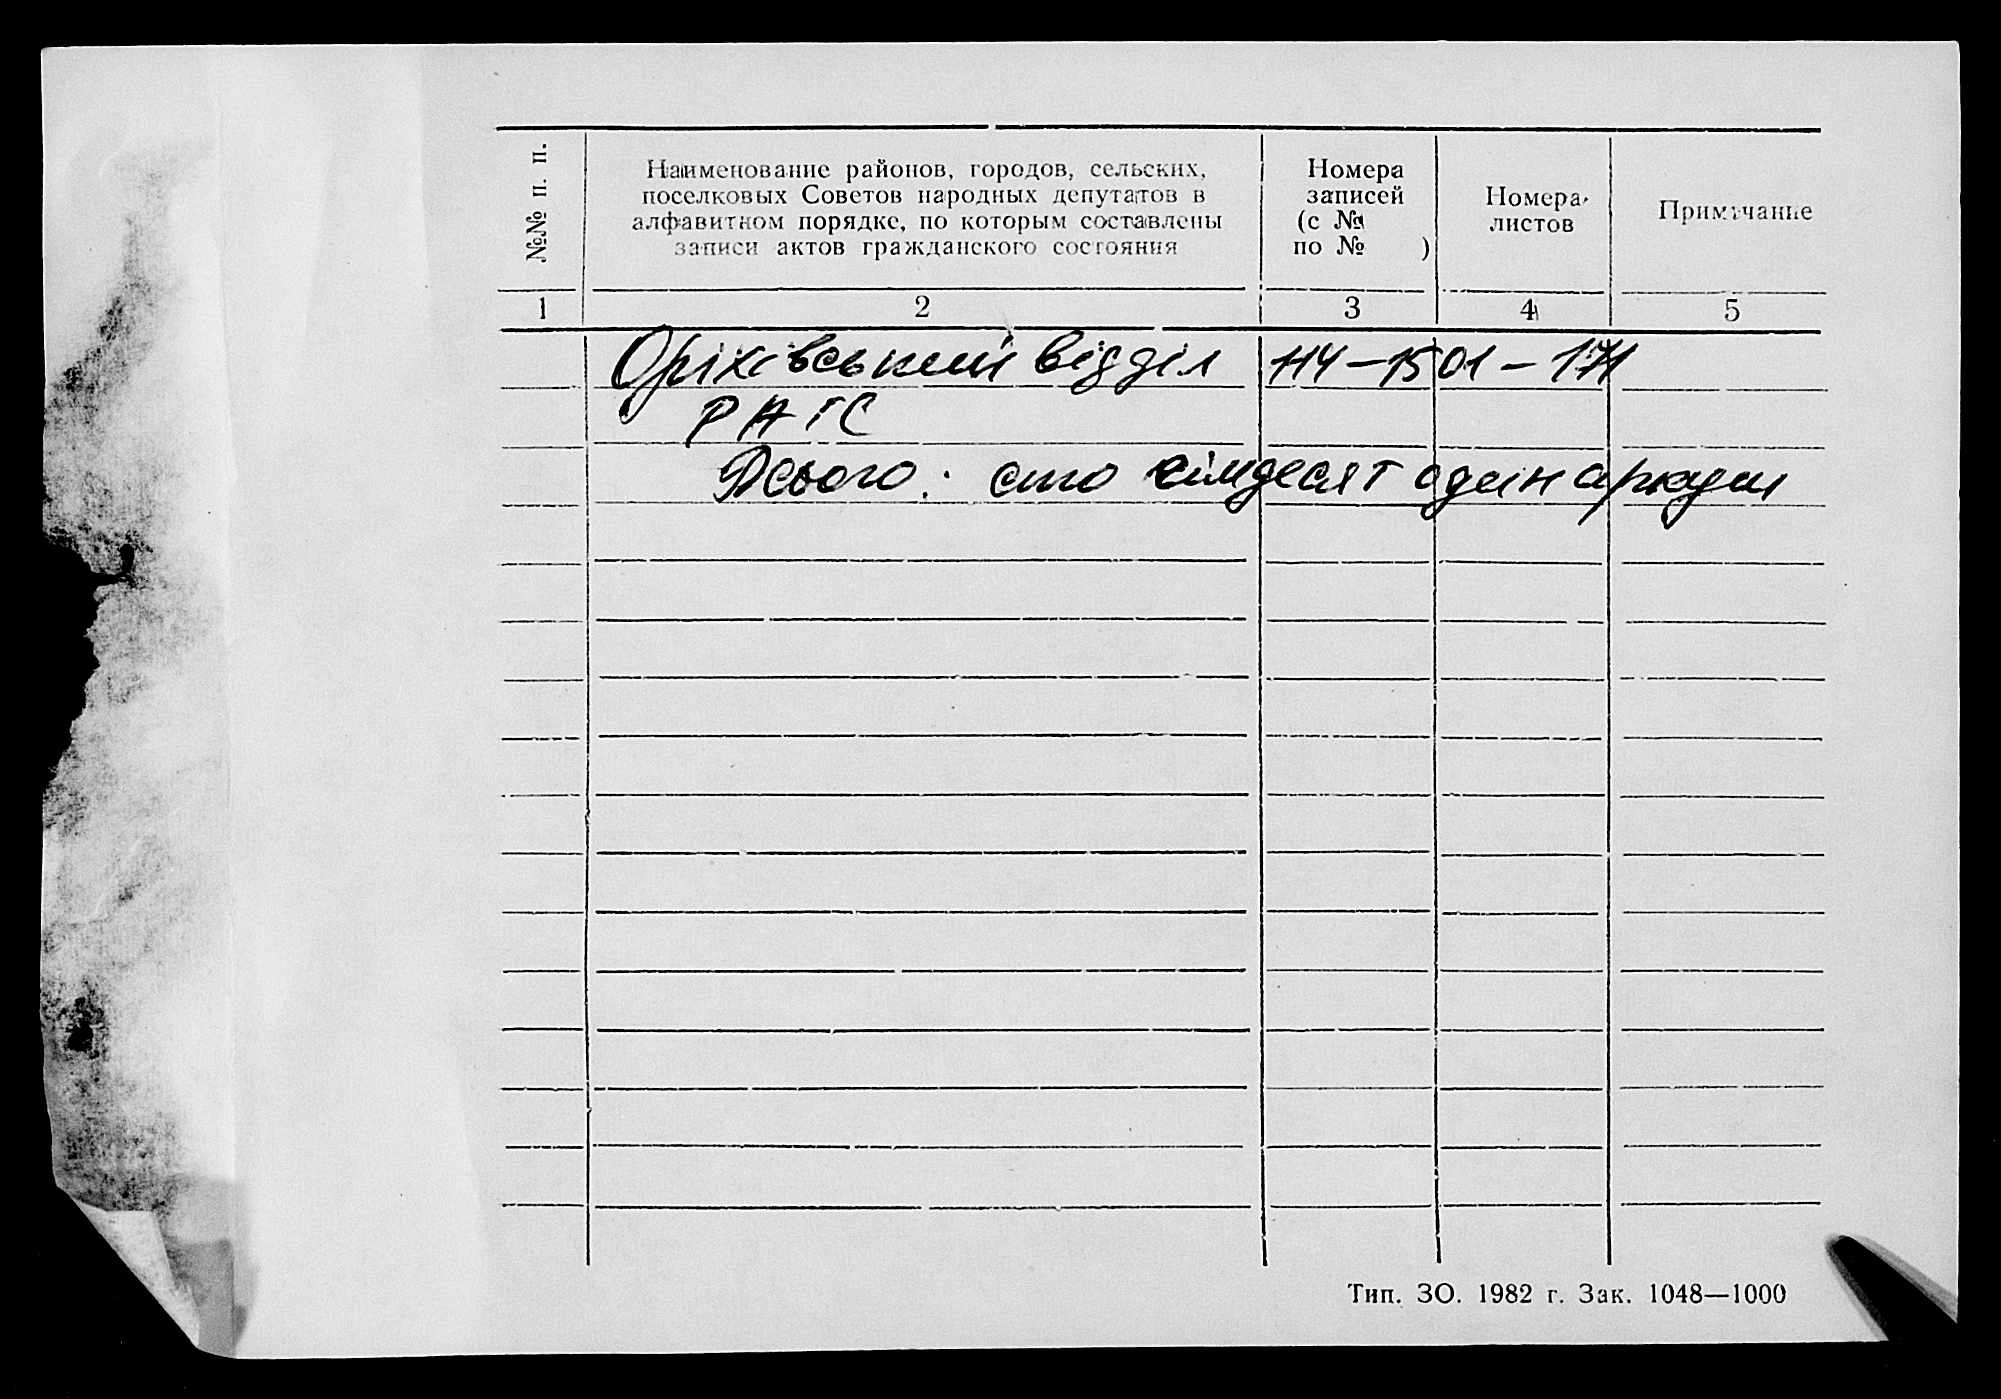 №№ п. п.
Наименование районов, городов, сельских,
поселковых Советов народных депутатов в
алфавитном порядке, по которым составлены
записи актов гражданского состояния
Номера
записей
(с №
по № )
Номера
листов
Примечание
1 2 3 4 5
Оріхівський відділ 114-15 01-171
РАГС
Всього: сто сімдесят один аркуш
Тип. ЗО. 1982 г. Зак. 1048—1000